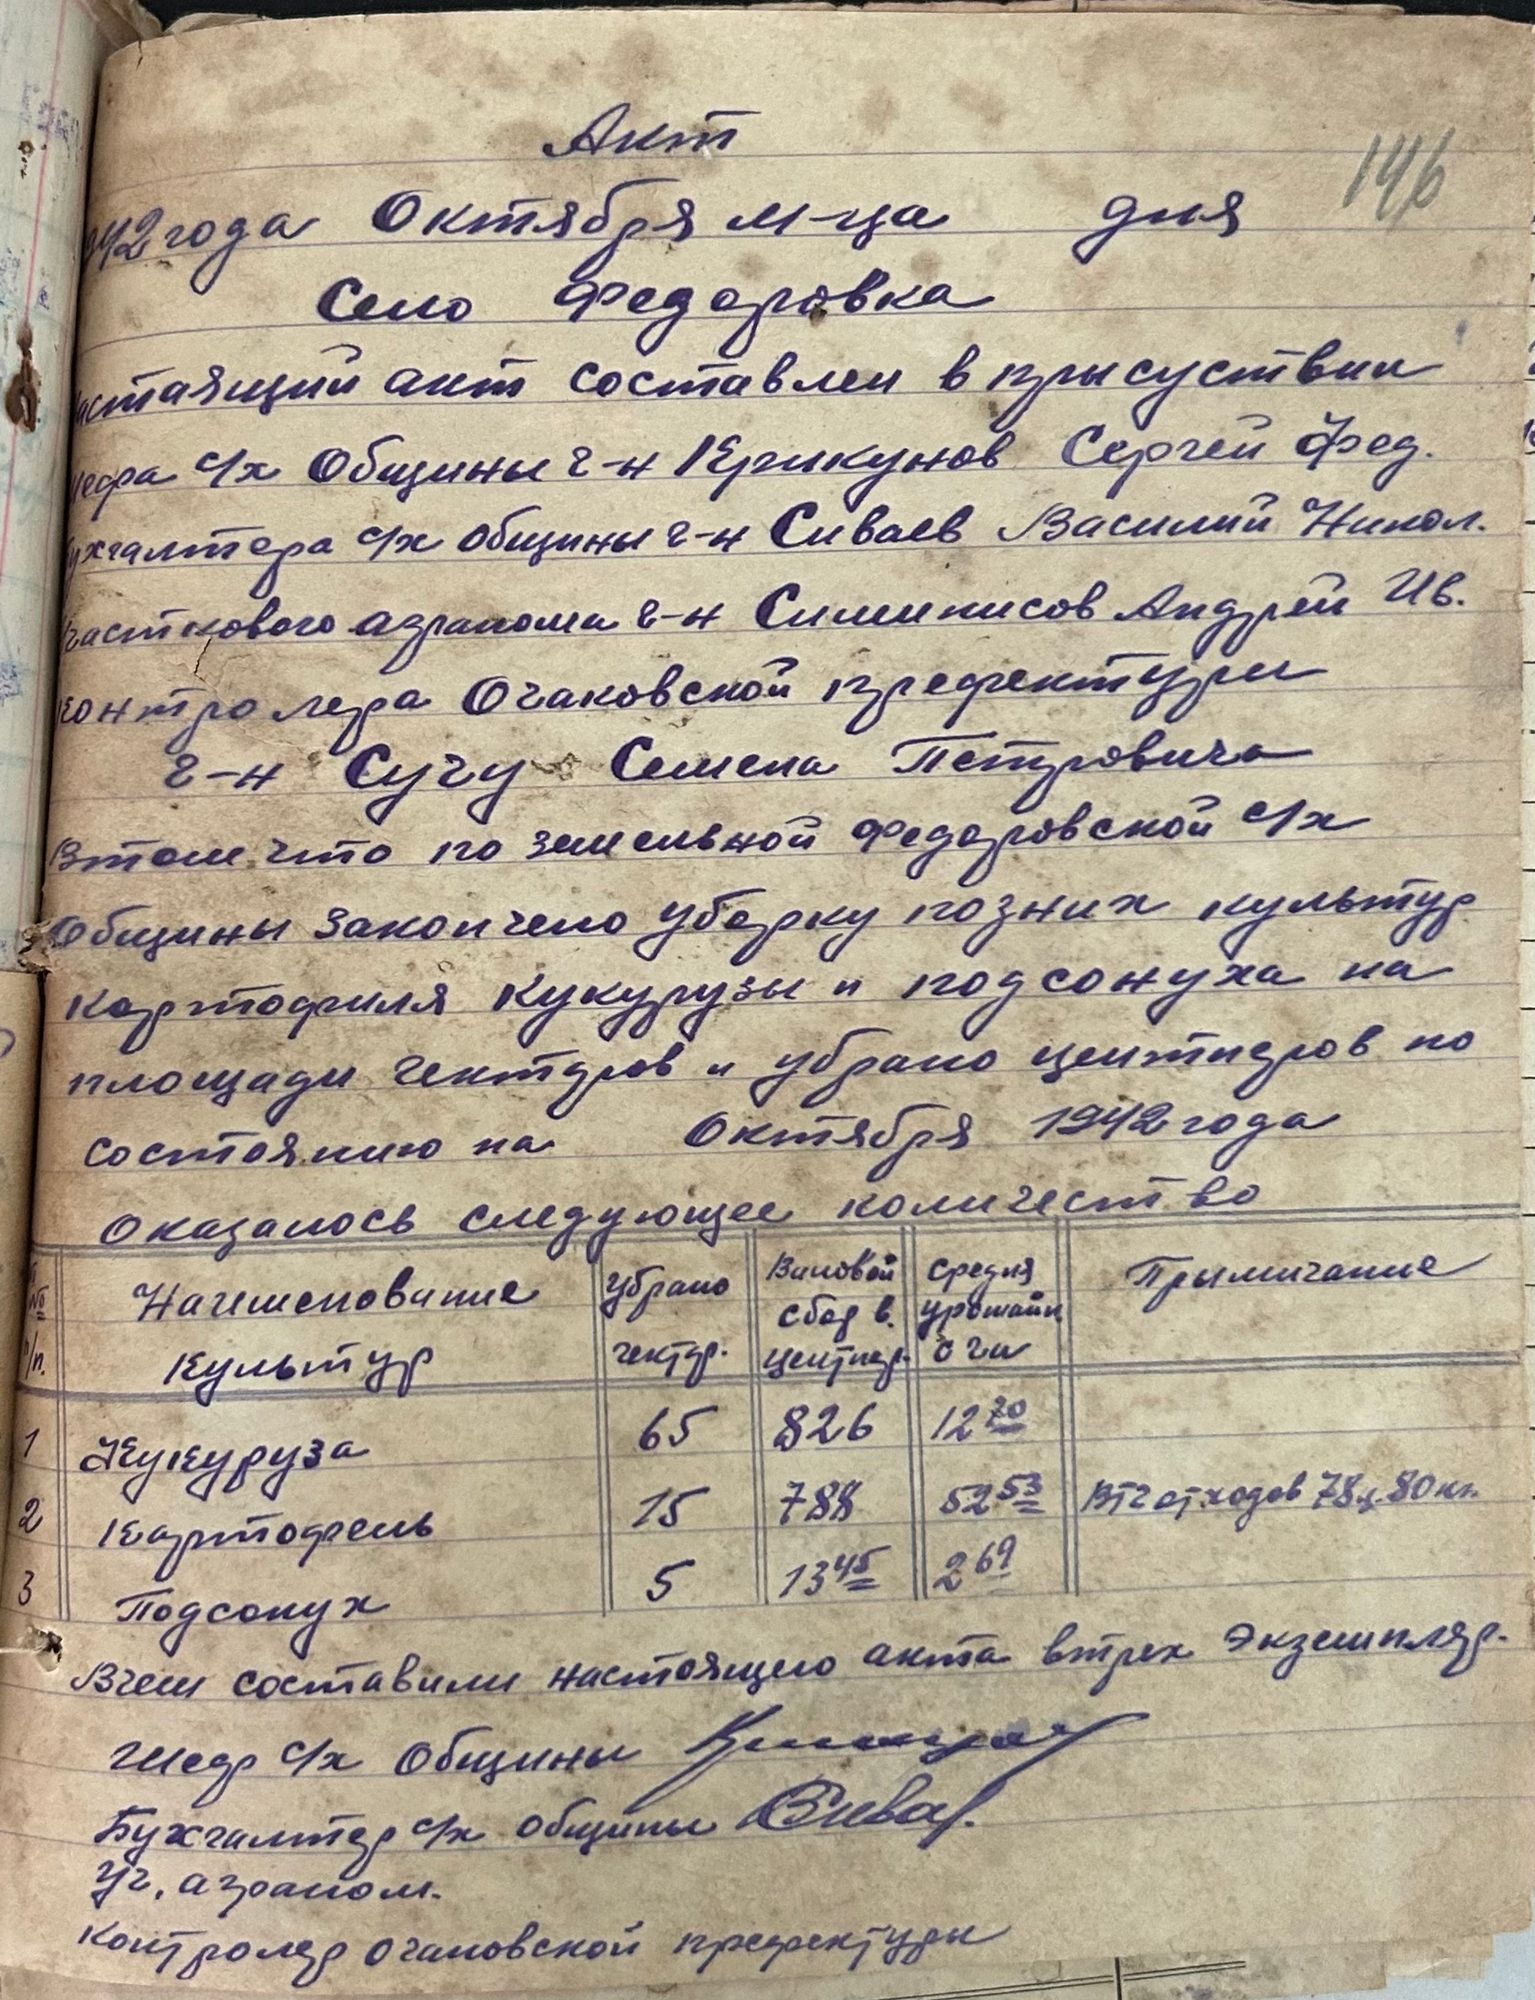 146
Акт
1942 года Октября м-ца дня
Село Федоровка
Настаящий акт составлен в прысуствии
Шефра с/х Общины г-н Крикунов Сергей Фед.
Бухгалтера с/х общины г-н Сиваев Василий Никол.
Участкового агранома г-н Симинисов Андрей Ив.
контролера Очаковской префектуры
г-н Сучу Семена Петровича
Втом что по земельной Федоровской с/х
Общины закончено уборку позних культур
картофиля кукурузы и подсонуха на
площади гектаров и убрано центнеров по
состоянию на Октября 1942 года
оказалось следующее количество
№ п/п. Наименование культур Убрано гектар. Валовой сбор в. центнер. Средня урожайн. с га Прымичание
1 Кукуруза 65 826 12 70
2 Картофель 15 788 52 53 Втч отходов 78ц. 80 кг.
3 Подсонух 5 13 45 2 69
Вчем составили настоящего акта втрех экземпляр.
Шефр с/х Общины
Бухгалтер с/х общины Сивае.
Уч. аграном.
Контролер очаковской префектуры